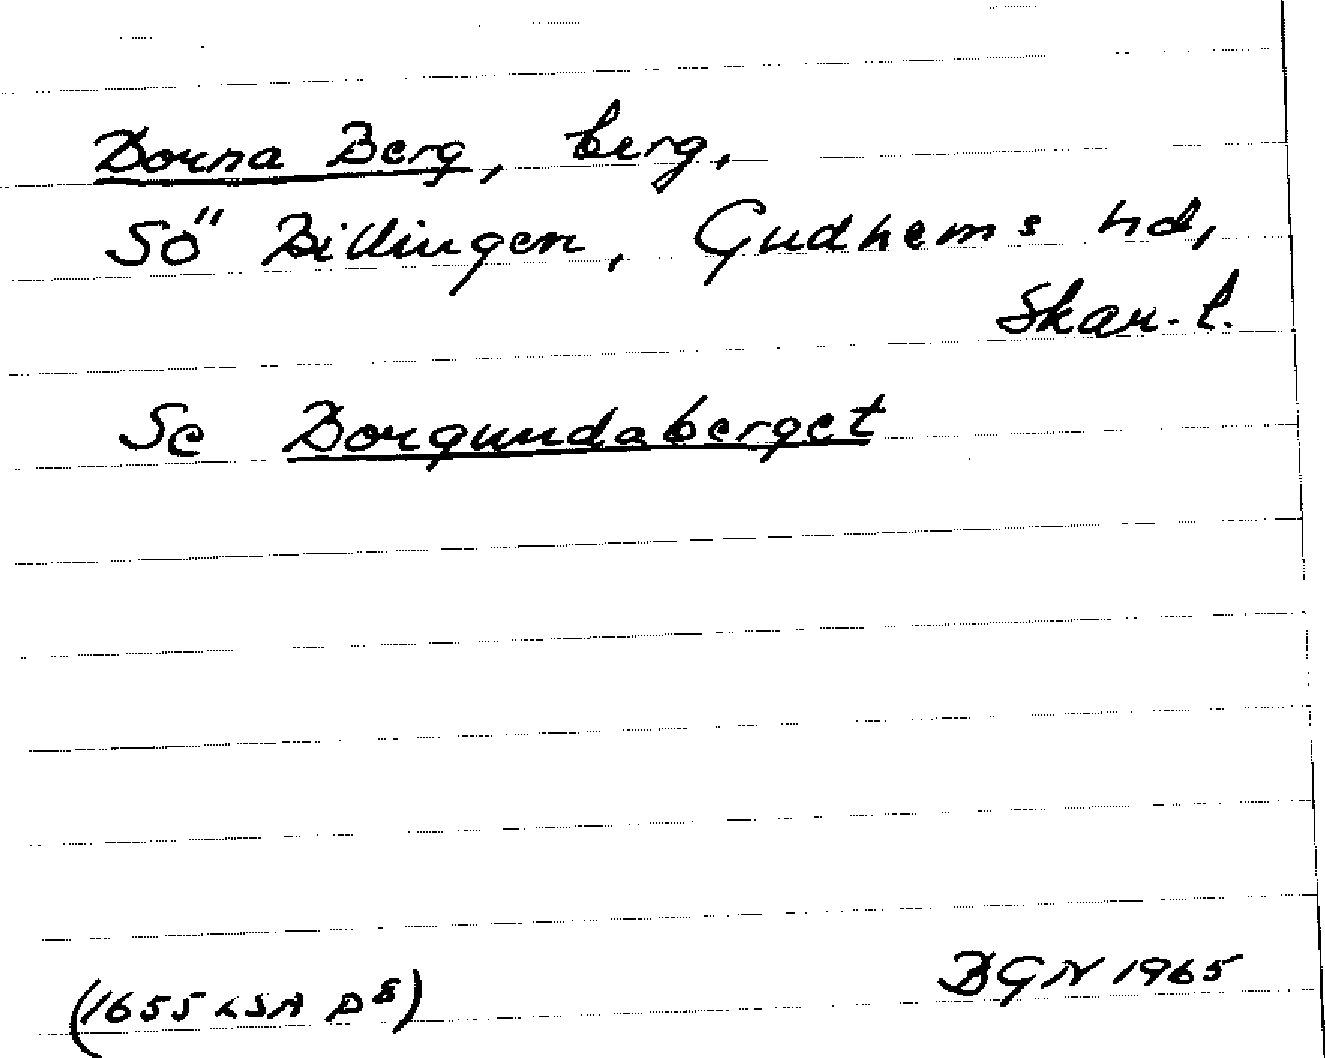 Borna Berg, berg,
Sö" Billingen, Gudhems hd,
Skar. l.
Se Borgundaberget
(1655 LSA P8)
BGN 1965